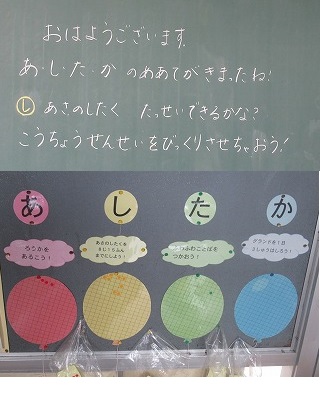 おはようございます。
あ・し・た・か のめあてがきまったね!
し あさのしたく たっせいできるかな?
こうちょうせんせいをびっくりさせちゃおう!
あ し た か
ろうかを
あるこう!
あさのしたくを
8じ15ふん
までにしよう!
ふわことばを
つかおう!
グランドを1日
2しゅうはしろう!